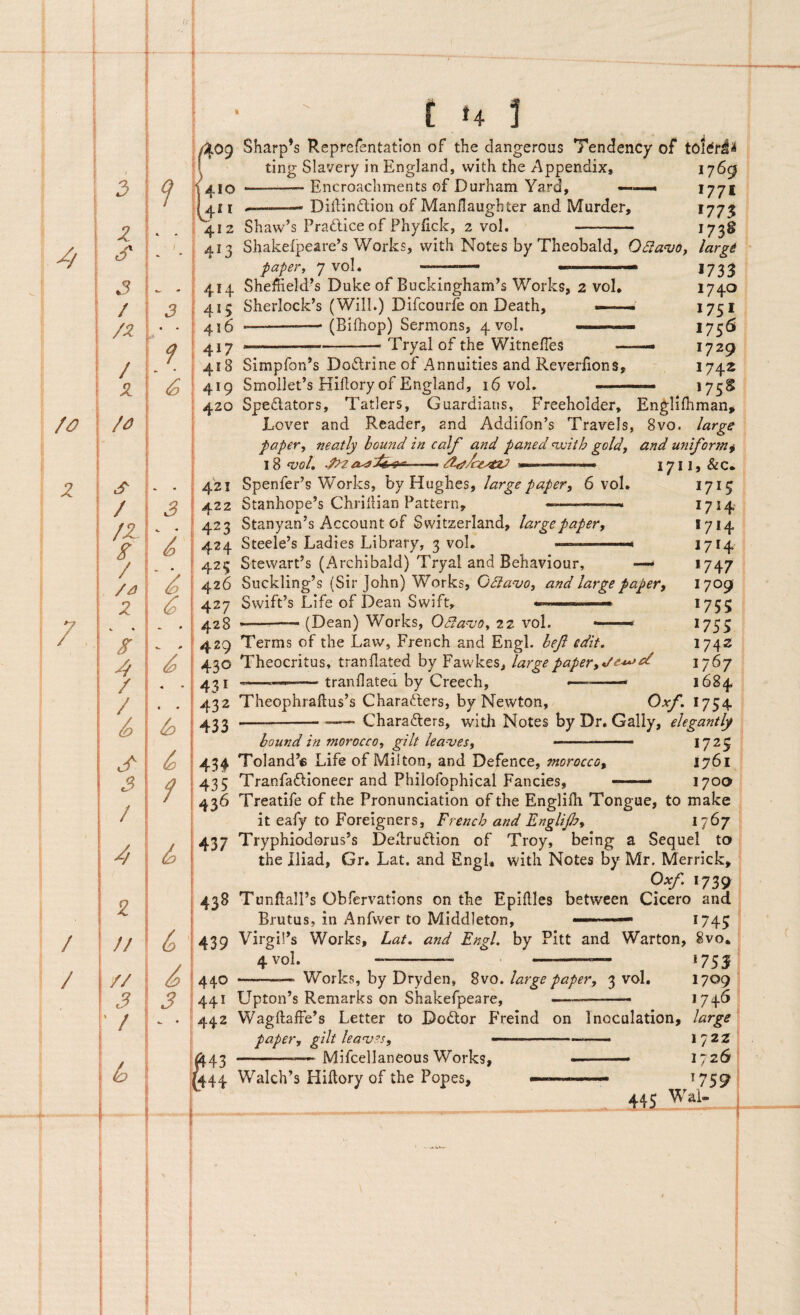 [ 14 ]
3 9 409 Sharp's Reprefentation of the dangerous Tendency of tolerá-
ting Slavery in England, with the Appendix, 1769
410 ——— Encroachments of Durham Yard, —— 1771
411 ——— Diftinction of Manflaughter and Murder, 1773
2 . . 412 Shaw's Practice of Phyfick, 2 vol. ——— 1738
4 5 . . 413 Shakefpeare's Works, with Notes by Theobald, Octavo, large
paper, 7 vol. ——— ——— 1733
3 . . 414 Sheffield's Duke of Buckingham's Works, 2 vol. 1740
1 3 415 Sherlock's (Will.) Difcourfe on Death, —— 1751
12 . . 416 ——— (Bifhop) Sermons, 4 vol. ——— 1756
9 417 ——— Tryal of the Witneffes —— 1729
1 . . 418 Simpfon's Doctrine of Annuities and Reverfions, 1742
2 6 419 Smollet's Hiftory of England, 16 vol. ——— 1758
10 10 420 Spectators, Tatlers, Guardians, Freeholder, Englifhman,
Lover and Reader, and Addifon's Travels, 8vo. large
paper, neatly bound in calf and paned with gold, and uniform,
18 vol. ——— 1711, &c.
2 5 . . 421 Spenfer's Works, by Hughes, large paper, 6 vol. 1715
1 3 422 Stanhope's Chriftian Pattern, ——— 1714
12 . . 423 Stanyan's Account of Switzerland, large paper, 1714
8 6 424 Steele's Ladies Library, 3 vol. ——— 1714
1 . . 425 Stewart's (Archibald) Tryal and Behaviour, — 1747
10 6 426 Suckling's (Sir John) Works, Octavo, and large paper, 1709
2 6 427 Swift's Life of Dean Swift, ——— 1755
7 . . . . 428 ——— (Dean) Works, Octavo, 22 vol. —— 1755
8 . . 429 Terms of the Law, French and Engl. beft edit. 1742
4 6 430 Theocritus, tranflated by Fawkes, large paper, sewed 1767
1 . . 431 ——— tranflated by Creech, ——— 1684
1 . . 432 Theophraftus's Characters, by Newton, Oxf. 1754
6 6 433 ——— —— Characters, with Notes by Dr. Gally, elegantly
bound in morocco, gilt leaves, ——— 1725
5 6 434 Toland's Life of Milton, and Defence, morocco, 1761
3 9 435 Tranfactioneer and Philofophical Fancies, —— 1700
1 436 Treatife of the Pronunciation of the Englifh Tongue, to make
it eafy to Foreigners, French and Englifh, 1767
4 6 437 Tryphiodorus's Deftruction of Troy, being a Sequel to
the Iliad, Gr. Lat. and Engl. with Notes by Mr. Merrick,
Oxf. 1739
2 438 Tunftall's Obfervations on the Epiftles between Cicero and
Brutus, in Anfwer to Middleton, ——— 1745
1 11 6 439 Virgil's Works, Lat. and Engl. by Pitt and Warton, 8vo.
4 vol. ——— ——— 1753
1 11 6 440 ——— Works, by Dryden, 8vo. large paper, 3 vol. 1709
3 3 441 Upton's Remarks on Shakefpeare, ——— 1746
1 . . 442 Wagftaffe's Letter to Doctor Freind on Inoculation, large
paper, gilt leaves, ——— 1722
6 443 ——— Mifcellaneous Works, ——— 1726
444 Walch's Hiftory of the Popes, ——— 1759
445 Wal-